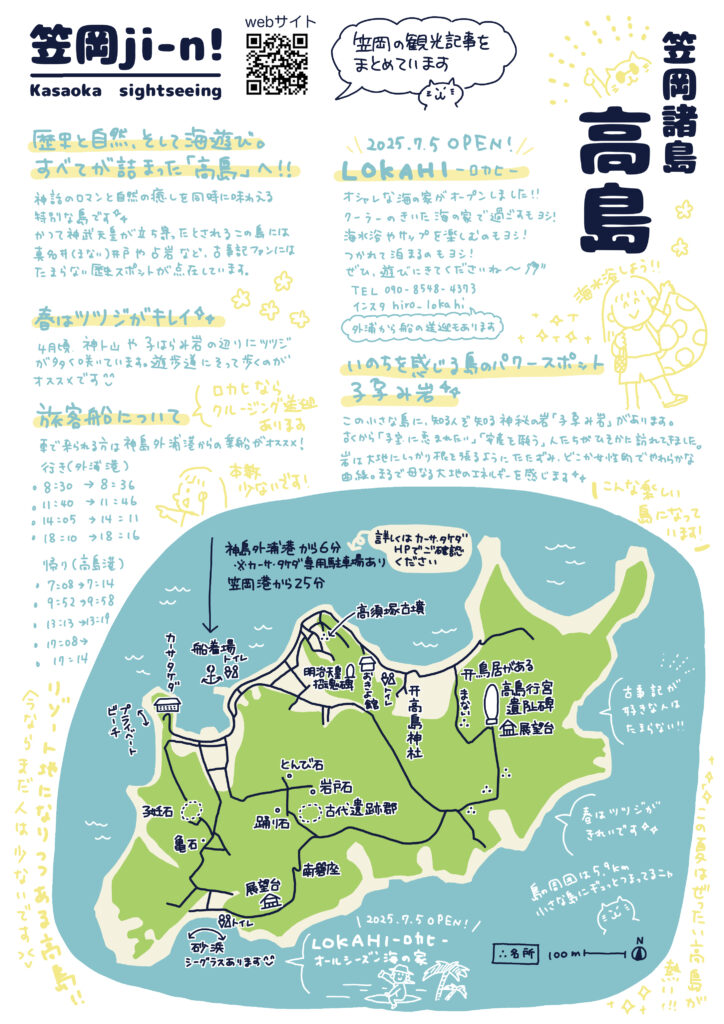 笠岡ji-n!
Kasaoka sightseeing
webサイト
笠岡の観光記事を
まとめています
笠岡諸島
高島
歴史と自然、そして海遊び。
すべてが詰まった「高島」へ!!
神話のロマンと自然の癒しを同時に味わえる
特別な島です
かつて神武天皇が立ち寄ったとされるこの島には
真名井(まない)井戸や占岩など、古事記ファンには
たまらない歴史スポットが点在しています。
春はツツジがキレイ
4月頃 神卜山や子はらみ岩の辺りにツツジ
が多く咲いています。遊歩道にそって歩くのが
オススメです
旅客船について
ロカヒなら
クルージング送迎
あります
車で来られる方は神島外浦港からの乗船がオススメ!
行き(外浦港)
8:30 → 8:36
11:40 → 11:46
14:05 → 14:11
18:10 → 18:16
本数
少ないです!
帰り(高島港)
7:08→7:14
9:52→9:58
13:13→13:19
17:08→
17:14
2025.7.5 OPEN!
LOKAHI-ロカヒー
オシャレな海の家がオープンしました!!
クーラーのきいた海の家で過ごすもヨシ!
海水浴やサップを楽しむのもヨシ!
つかれて泊まるのもヨシ!
ぜひ、遊びにきてくださいね〜
TEL 090-8548-4373
インスタ hiro_lokahi
外浦から船の送迎もあります
海水浴しよう!!
いのちを感じる島のパワースポット
子孕み岩
この小さな島に、知る人ぞ知る神秘の岩「子孕み岩」があります。
古くから「子宝に恵まれたい」「安産を願う」人たちがひそかに訪れてきました。
岩は大地にしっかり根を張るようにたたずみ、どこか女性的でやわらかな
曲線。まるで母なる大地のエネルギーを感じます
こんな楽しい
島になって
います!
神島外浦港から6分
・※カーサ・タケダ専用駐車場あり
笠岡港から25分
詳しくはカーサ・タケダ
HPでご確認
ください
カーサ・タケダ
プライベート
ビーチ
船着場
トイレ
高須塚古墳
明治天皇
おきよ館
トイレ
高島神社
鳥居がある
まない
高島行宮
遺阯碑
展望台
とんで石
岩戸石
踊り石
古代遺跡郡
子妊石
亀石
南磐座
展望台
トイレ
砂浜
シーグラスあります
2025.7.5 OPEN!
LOKAHI-ロカヒ-
オールシーズン海の家
古事記が
好きな人は
たまらない!!
春はツツジが
きれいです
島の周囲は5.9km
小さな島にギュッとつまってるニャ
∴名所
100m
N
リゾート地になりつつある高島!!
今ならまだ人は少ないです
この夏はぜったい高島が
熱い!!